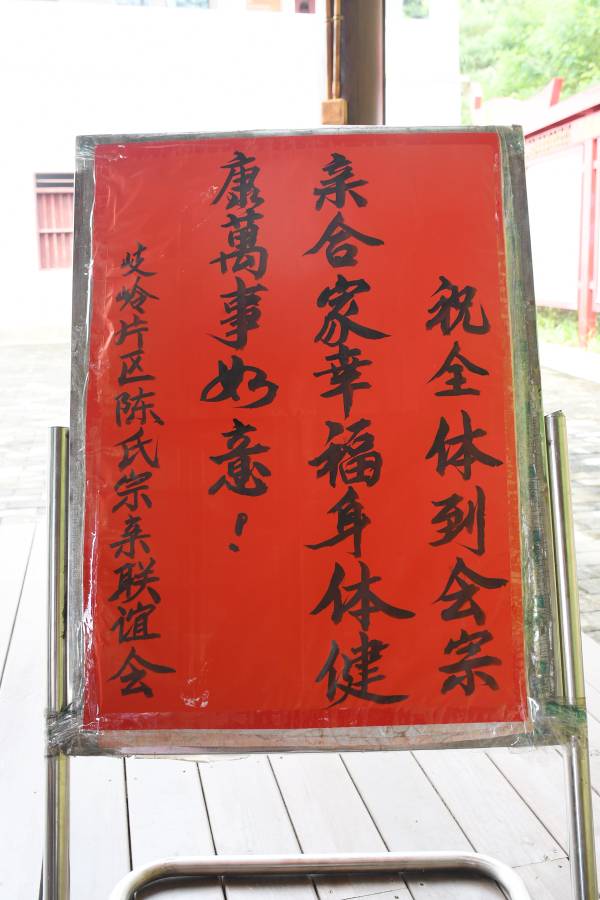 祝全体到会宗
亲合家幸福身体健
康萬事如意！
岐岭片区陈氏宗亲联谊会